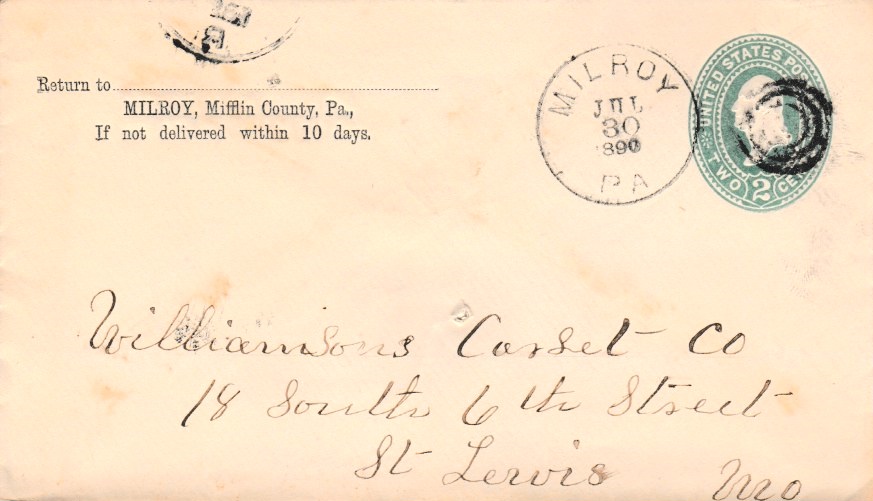 Return to
MILROY, Mifflin County, Pa.,
If not delivered within 10 days.
MILROY
JUL
30
1890
PA
UNITED STATES PO
TWO 2 CE
Williamsons Corset Co
18 South 6th Street
St Lewis Mo